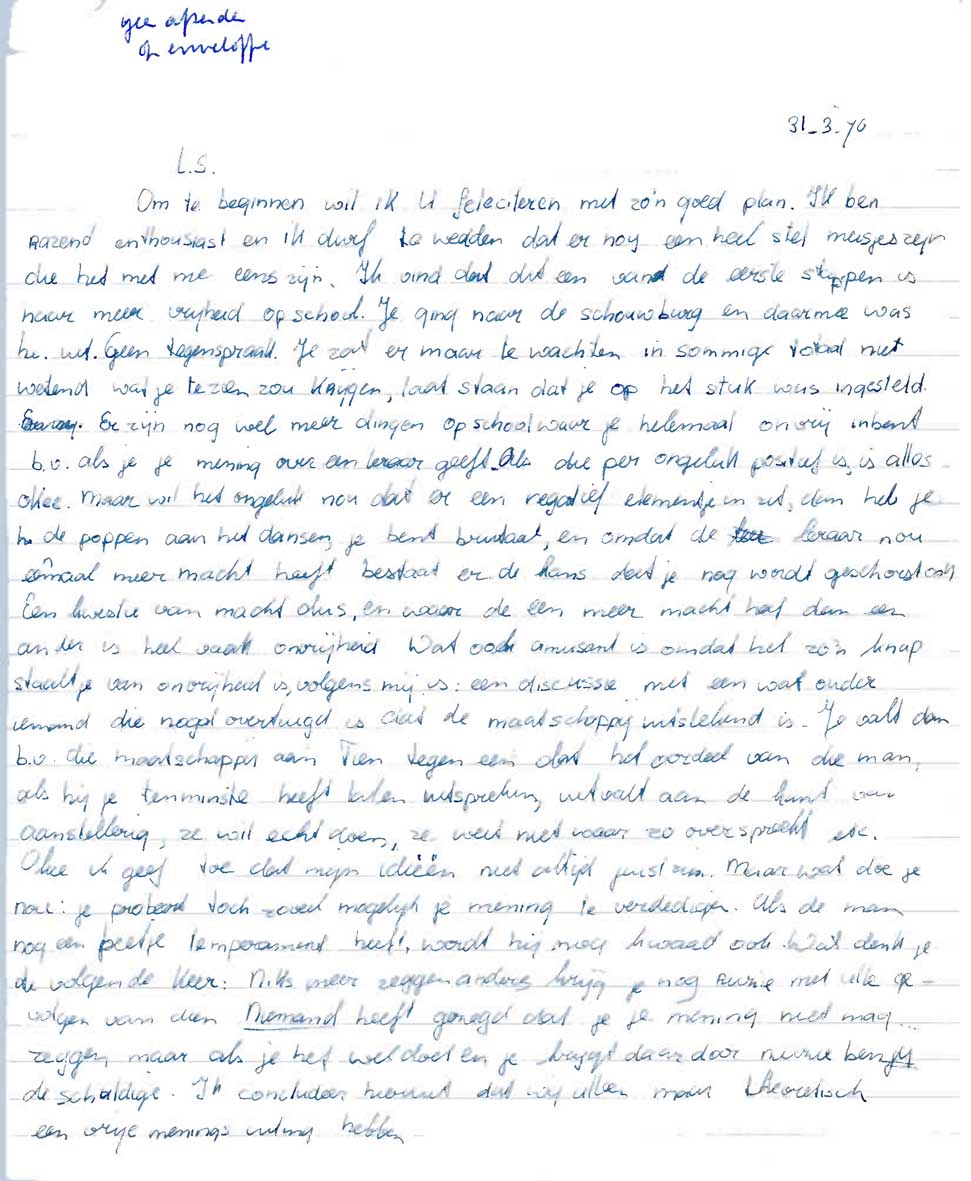 geen afzender
op enveloppe
31-3-70
L.S.
Om te beginnen wil ik U feleciteren met zo'n goed plan. Ik ben
razend enthousiast en ik durf te wedden dat er nog een heel stel meisjes zijn
die het met me eens zijn. Ik vind dat dit een vand de eerste stappen is
naar meer vrijheid op school. Je ging naar de schouwburg en daarmee was
het uit. Geen tegenspraak. Je zat er maar te wachten in sommige totaal niet
wetend wat je te zien zou krijgen, laat staan dat je op het stuk was ingesteld.
Er zijn nog wel meer dingen op school waar je helemaal onvrij in bent
b.v. als je je mening over een leraar geeft. Als die per ongeluk positief is, is alles
okee. Maar wil het ongeluk nou dat er een negatief elementje in zit, dan heb je
de poppen aan het dansen, je bent brutaal, en omdat de leraar nou
eenmaal meer macht heeft bestaat er de kans dat je nog wordt geschorst ook
Een kwestie van macht dus, en waar de een meer macht heeft dan een
ander is heel vaak onvrijheid Wat ook amusant is omdat het zo'n knap
staaltje van onvrijheid is, volgens mij is: een discussie met een wat ouder
iemand die nogal overtuigd is dat de maatschappij uitstekend is. Je valt dan
b.v. die maatschappij aan Tien tegen een dat het oordeel van die man,
als hij je tenminste heeft laten uitspreken, uitvalt aan de kant van
aanstellerig, ze wil echt doen, ze weet niet waar ze over spreekt etc.
Okee ik geef toe dat mijn idieën niet altijd juist zijn. Maar wat doe je
nou: je probeert toch zoveel mogelijk je mening te verdedigen. Als de man
nog een beetje temperament heeft, wordt hij nog kwaad ook. Wat denk je
de volgende keer: Niks meer zeggen anders krijg je nog ruzie met alle ge-
volgen van dien Niemand heeft gezegd dat je je mening niet mag ...
zeggen, maar als je het wel doet en je krijgt daardoor ruzie ben jij
de schuldige. Ik concludeer hieruit dat wij alleen maar theoretisch
een vrije menings uiting hebben